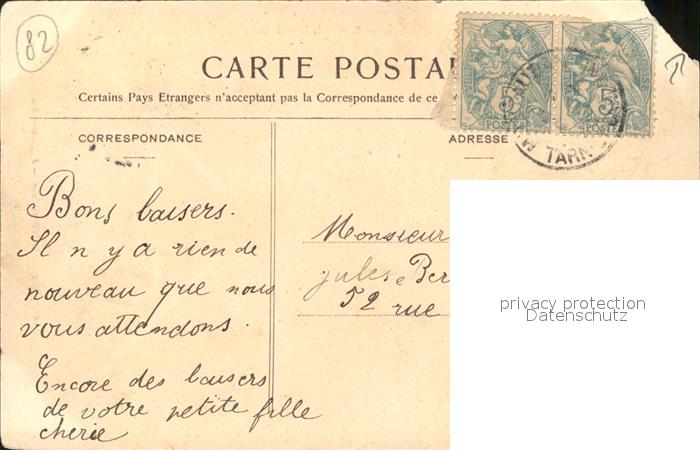 82
CARTE POSTA
Certains Pays Etrangers n'acceptant pas la Correspondance de ce
5 5
POSTES POSTES
TARN
CORRESPONDANCE
ADRESSE
Bons baisers.
Il n y a rien de
nouveau que nous
vous attendons.
Encore des baisers
de votre petite fille
cherie
Monsieur
jules Ber
52 rue
privacy protection
Datenschutz